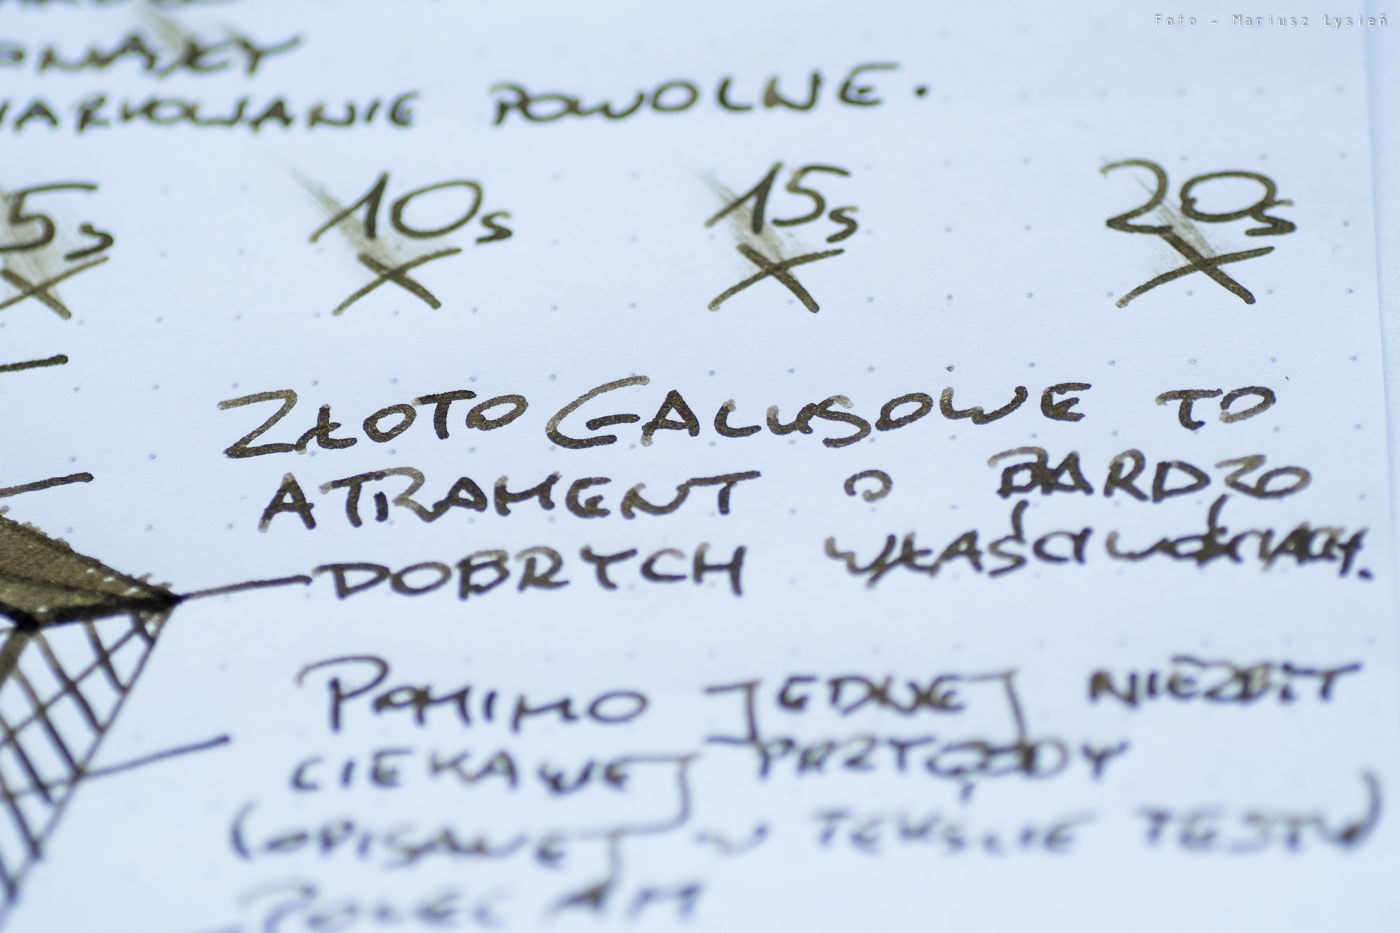 Foto - Mariusz Łysień
POWOLNE.
5s 10s 15s 20s
X X X X
ZŁOTO GALUSOWE TO
ATRAMENT O BARDZO
DOBRYCH WŁAŚCIWOŚCIACH.
POMIMO JEDNEJ NIEZBYT
CIEKAWEJ PRZYGODY
(OPISANEJ W TEKŚCIE TESTU)
POLECAM